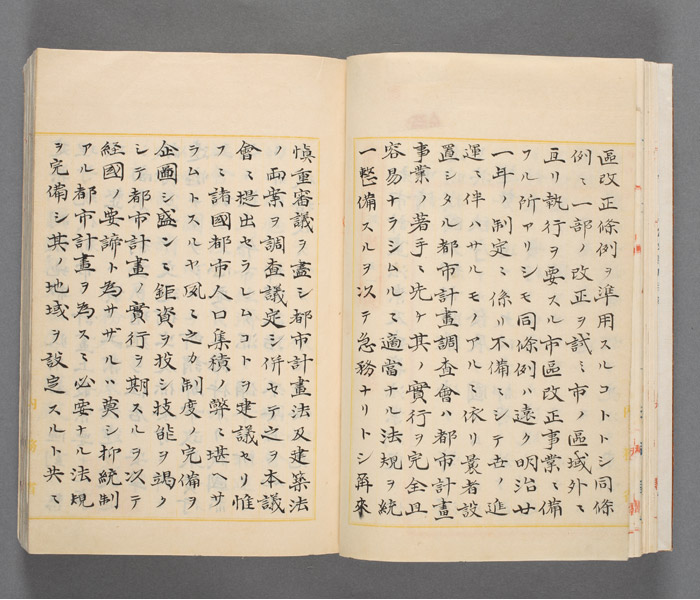 區改正條例ヲ準用スルコトトシ同條
例ニ一部ノ改正ヲ試ミ市ノ區域外ニ
亙リ執行ヲ要スル市區改正事業ニ備
フル所アリシモ同條例ハ遠ク明治廿
一年ノ制定ニ係リ不備ニシテ世ノ進
運ニ伴ハサルモノアルニ依リ曩者設
置シタル都市計畫調査會ハ都市計畫
事業ノ著手ニ先ケ其ノ實行ヲ完全且
容易ナラシムルニ適當ナル法規ヲ統
一整備スルヲ以テ急務ナリトシ爾來
愼重審議ヲ盡シ都市計畫法及建築法
ノ両案ヲ調査議定シ併セテ之ヲ本議
會ニ提出セラレムコトヲ建議セリ惟
フニ諸國都市人口集積ノ弊ニ堪ヘサ
ラムトスルヤ夙ニ之カ制度ノ完備ヲ
企圖シ盛ンニ鉅資ヲ投シ技能ヲ竭ク
シテ都市計畫ノ實行ヲ期スルヲ以テ
經國ノ要諦ト為サザルハ莫シ抑統制
アル都市計畫ヲ為スニ必要ナル法規
ヲ完備シ其ノ地域ヲ設定スルト共ニ